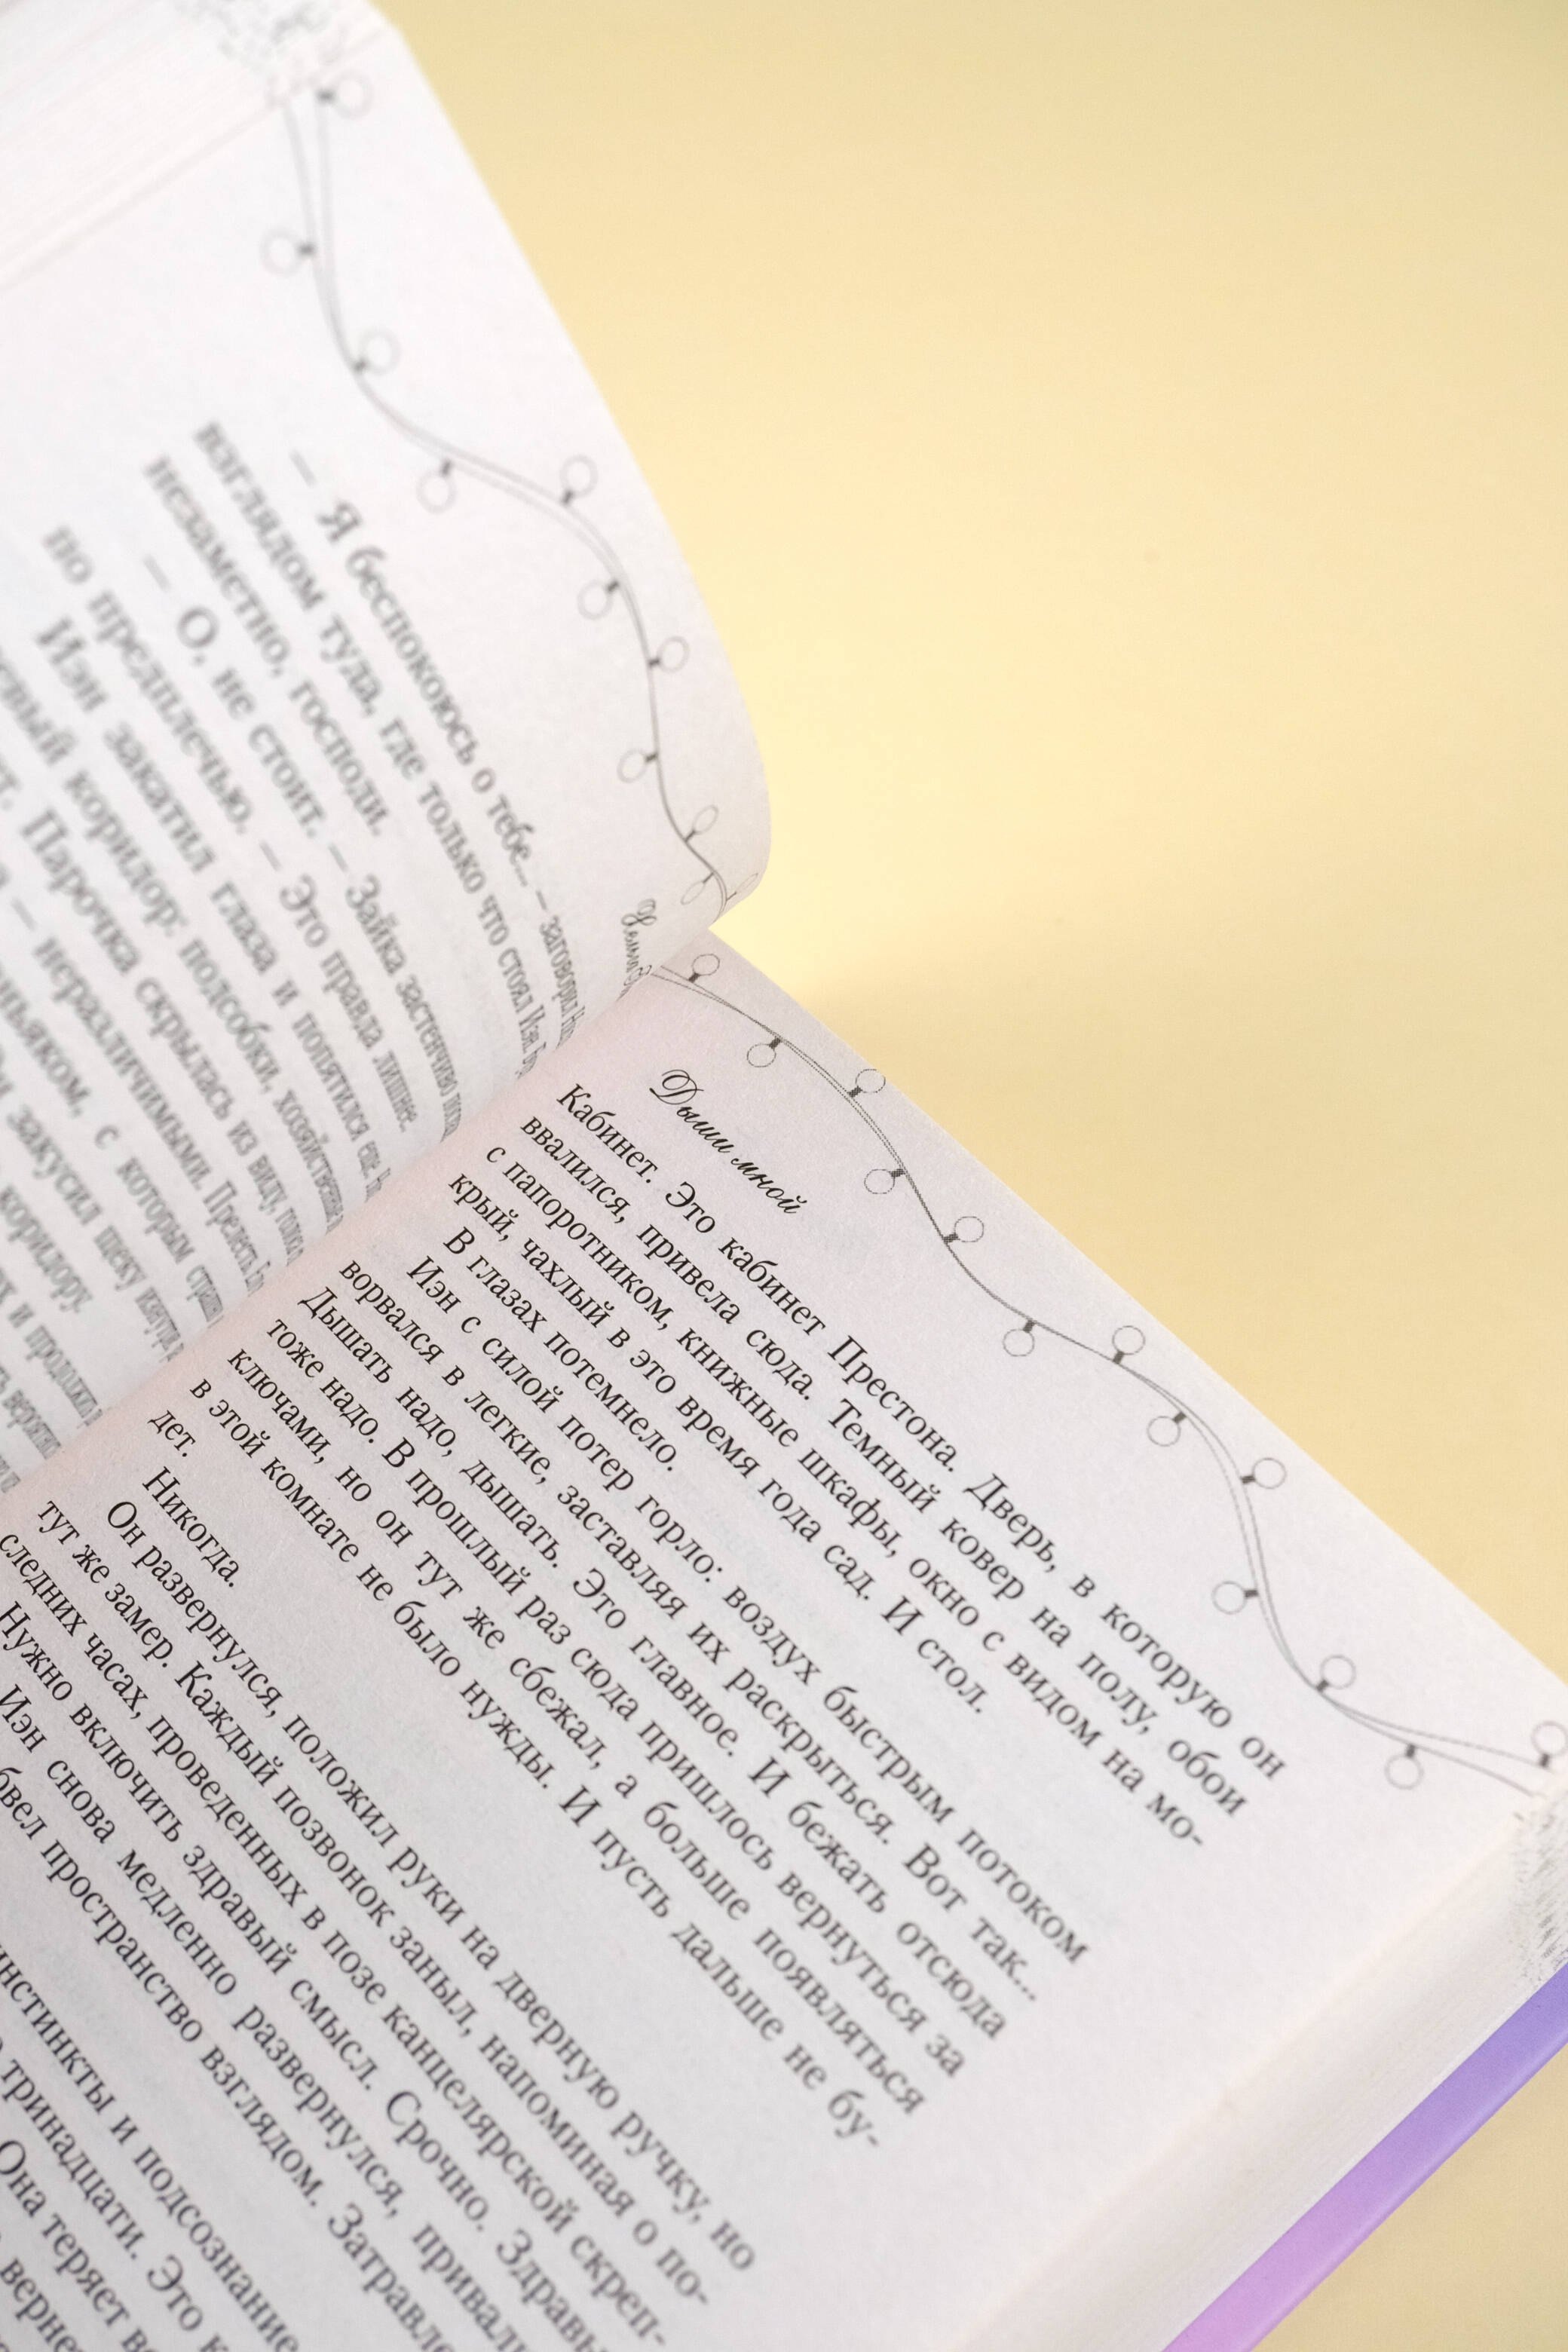 — Я беспокоюсь о тебе... — заговорил
взглядом туда, где только что стоял Иэн.
незаметно, господи.
— О, не стоит. — Зайка застенчиво
по предплечью. — Это правда лишнее.
Иэн закатил глаза и попятился еще.
коридор: подсобки, хозяйственные
Парочка скрылась из виду,
— неразличимыми. Прелесть.
с которым
закусил щеку изнутри
коридору.
и продолжил
Дыши мной
Кабинет. Это кабинет Престона. Дверь, в которую он
ввалился, привела сюда. Темный ковер на полу, обои
с папоротником, книжные шкафы, окно с видом на мо-
крый, чахлый в это время года сад. И стол.
В глазах потемнело.
Иэн с силой потер горло: воздух быстрым потоком
ворвался в легкие, заставляя их раскрыться. Вот так...
Дышать надо, дышать. Это главное. И бежать отсюда
тоже надо. В прошлый раз сюда пришлось вернуться за
ключами, но он тут же сбежал, а больше появляться
в этой комнате не было нужды. И пусть дальше не бу-
дет.
Никогда.
Он развернулся, положил руки на дверную ручку, но
тут же замер. Каждый позвонок заныл, напоминая о по-
следних часах, проведенных в позе канцелярской скреп-
Нужно включить здравый смысл. Срочно.
Иэн снова медленно развернулся,
пространство взглядом.
инстинкты и подсознание
тринадцати. Это
Она теряет